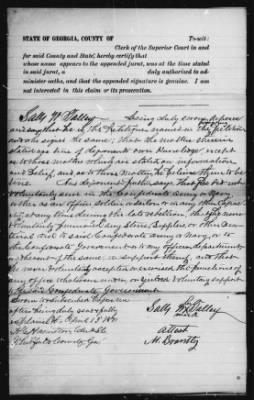 STATE OF GEORGIA, COUNTY OF To-wit:
Clerk of the Superior Court in and
for said County and State, hereby certify that
whose name appears to the appended jurat, was at the time stated
in said jurat, a duly authorized to ad-
minister oaths, and that the appended signature is genuine. I am
not interested in this claim or its prosecution.
being duly sworn deposes
and says that he is the Petitioner named in the petition
and who signed the same, that the matters therein
stated are true of deponent's own knowledge except
as to those matters which are stated on information
and belief, and as to those matters he believes them to be
true. And deponent further says that he did not
voluntarily serve in the Confederate Army or Navy
either as an officer soldier or sailor or in any other capa-
city at any time during the late rebellion, that he never
voluntarily furnished any stores, supplies or other
material aid to said Confederate Army or Navy, or to
the Confederate Government or to any officer department
or adherent of the same, in support thereof, and that
he never voluntarily accepted or exercised the functions of
any office whatsoever under, or yielded voluntary support
to said Confederate Government
Sworn to subscribed before me
after being duly & carefully
April 15
County Ga
attest